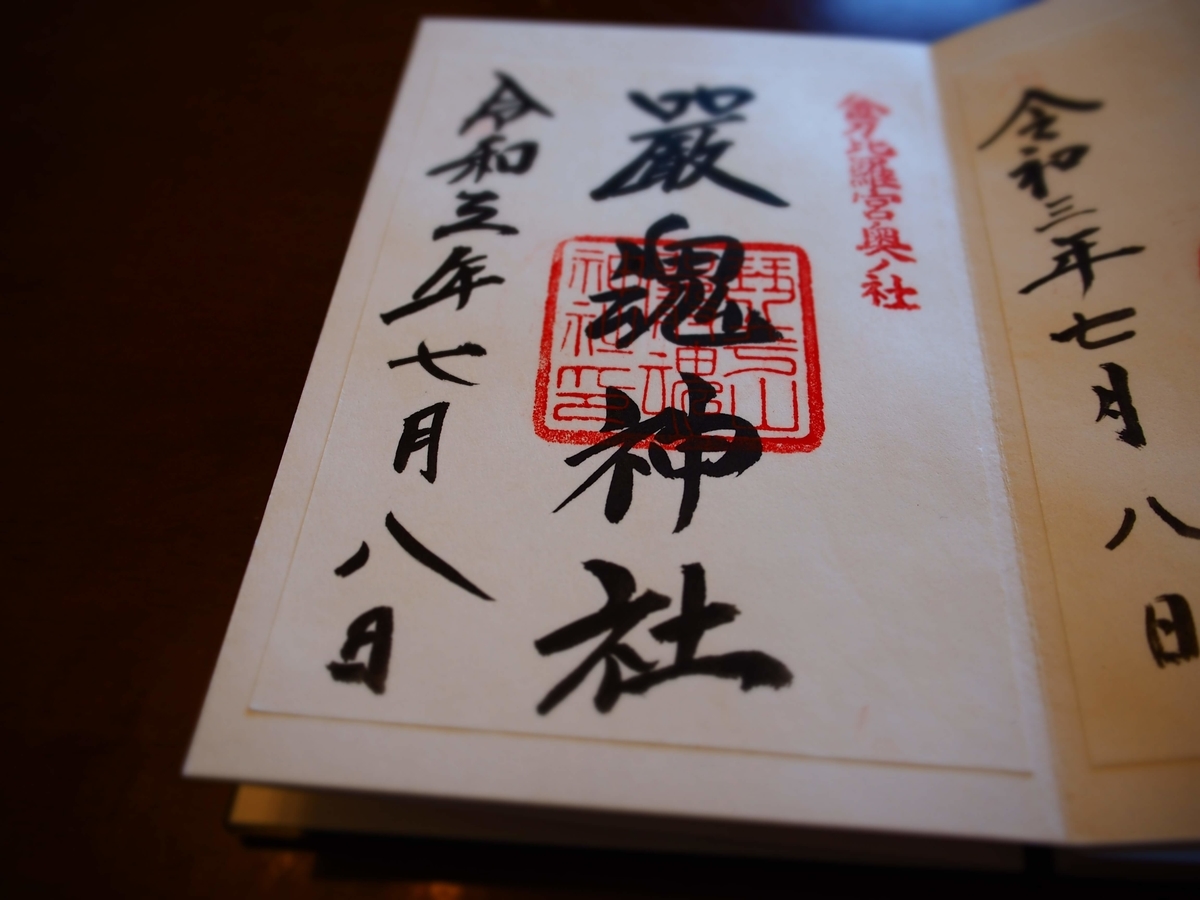 令和三年七月八日
金刀比羅宮奥ノ社
嚴魂神社
琴平山
神社印
令和三年七月八日